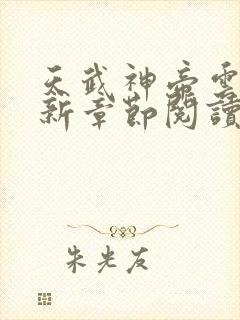 天武神帝雲
新章節閱讀
朱光友